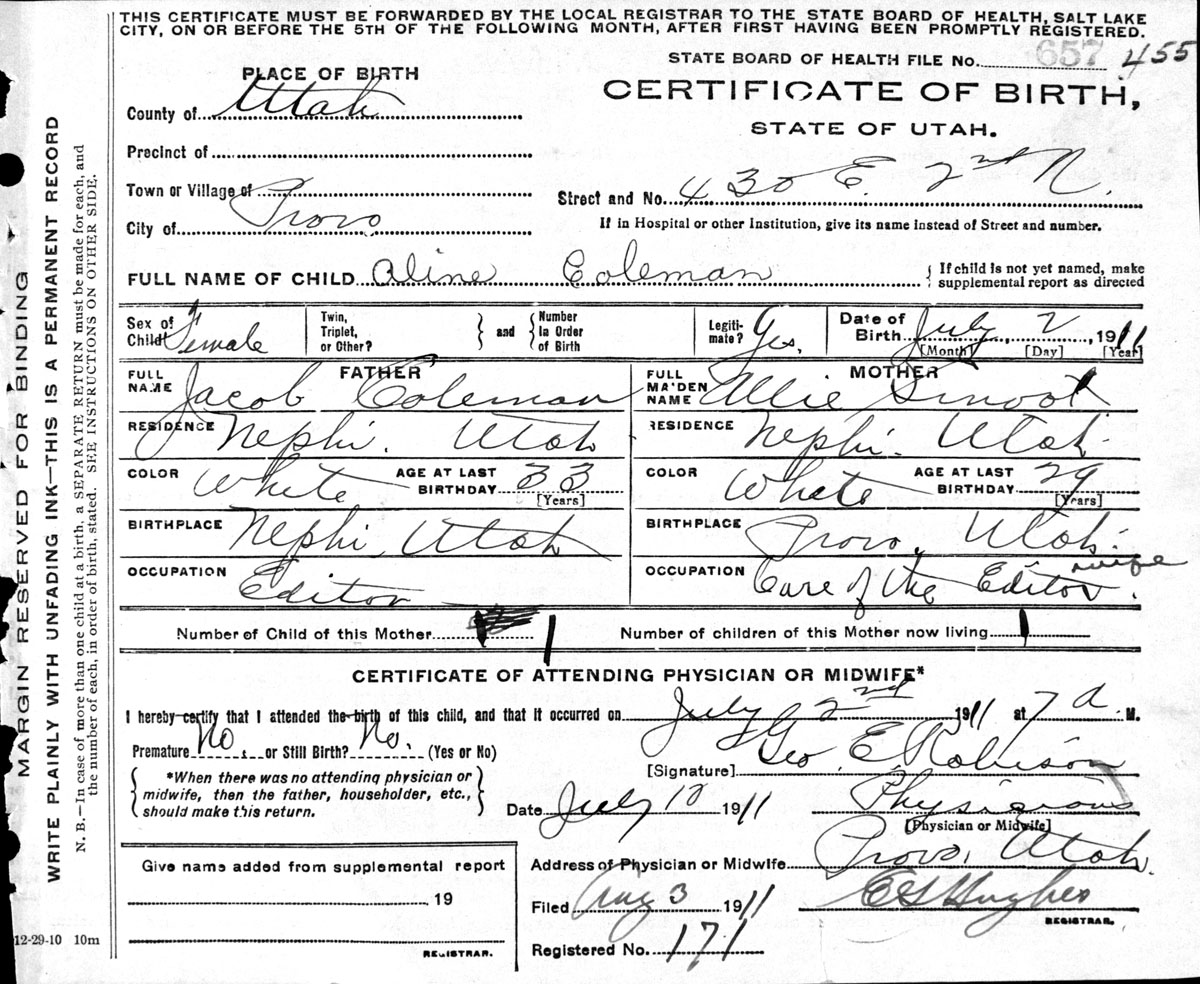 THIS CERTIFICATE MUST BE FORWARDED BY THE LOCAL REGISTRAR TO THE STATE BOARD OF HEALTH, SALT LAKE
CITY, ON OR BEFORE THE 5TH OF THE FOLLOWING MONTH, AFTER FIRST HAVING BEEN PROMPTLY REGISTERED.
STATE BOARD OF HEALTH FILE No. 657 455
PLACE OF BIRTH
CERTIFICATE OF BIRTH,
County of Utah
STATE OF UTAH.
Precinct of
Town or Village of
Street and No. 430 E. 2nd N.
City of Provo
If in Hospital or other Institution, give its name instead of Street and number.
FULL NAME OF CHILD Aline Coleman { If child is not yet named, make
supplemental report as directed
Sex of Child Female Twin, Triplet, or Other? } and { Number in Order of Birth Legiti-mate? Yes. Date of Birth July 2, 1911
[Month] [Day] [Year]
FATHER MOTHER
FULL NAME Jacob Coleman FULL MAIDEN NAME Allie Smoot
RESIDENCE Nephi. Utah RESIDENCE Nephi. Utah.
COLOR White AGE AT LAST BIRTHDAY 33 [Years] COLOR White AGE AT LAST BIRTHDAY 29 [Years]
BIRTHPLACE Nephi, Utah BIRTHPLACE Provo, Utah.
OCCUPATION Editor OCCUPATION Care of the Editor. wife
Number of Child of this Mother 1 Number of children of this Mother now living 1
CERTIFICATE OF ATTENDING PHYSICIAN OR MIDWIFE*
I hereby certify that I attended the birth of this child, and that it occurred on July 2nd 1911 at 7 a. M.
Premature No. or Still Birth? No. (Yes or No)
[Signature] Geo. E. Robison
*When there was no attending physician or
midwife, then the father, householder, etc.,
should make this return.
Date July 12 1911 Physician
[Physician or Midwife]
Give name added from supplemental report
Address of Physician or Midwife Provo, Utah.
19
Filed Aug 3 1911 E S Hughes
REGISTRAR.
REGISTRAR.
Registered No. 171
12-29-10 10m
MARGIN RESERVED FOR BINDING
WRITE PLAINLY WITH UNFADING INK—THIS IS A PERMANENT RECORD
N. B.—In case of more than one child at a birth, a SEPARATE RETURN must be made for each, and
the number of each, in order of birth, stated. SEE INSTRUCTIONS ON OTHER SIDE.